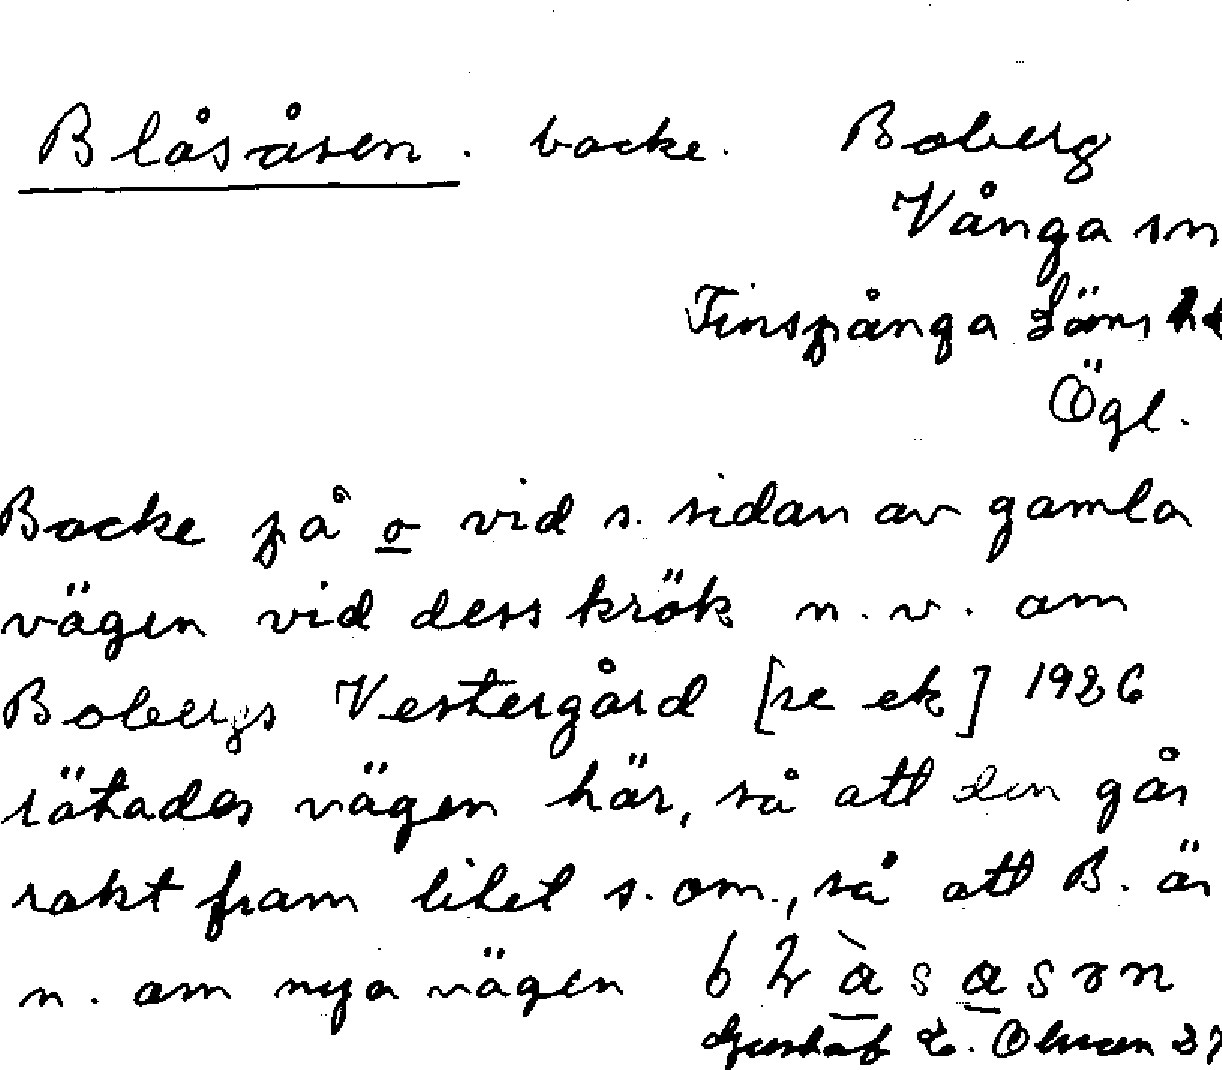 Blåsåsen. backe. Boberg
Vånga sn
Finspånga Läns
Ögl.
Backe på o vid s. sidan av gamla
vägen vid dess krök n. v. om
Bobergs Vestergård [se ek] 1926
rätades vägen här, så att den går
rakt fram litet s. om., så att B. är
n. om nya vägen
Gustaf